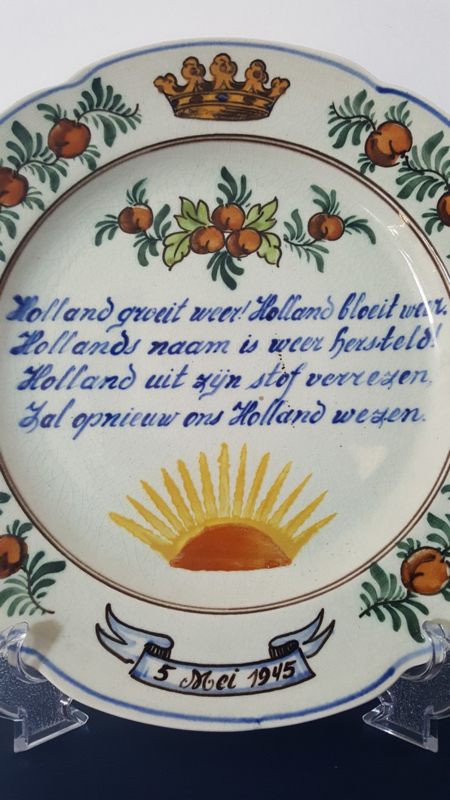 Holland groeit weer! Holland bloeit weer.
Hollands naam is weer hersteld!
Holland uit zijn stof verrezen,
Zal opnieuw ons Holland wezen.
5 Mei 1945